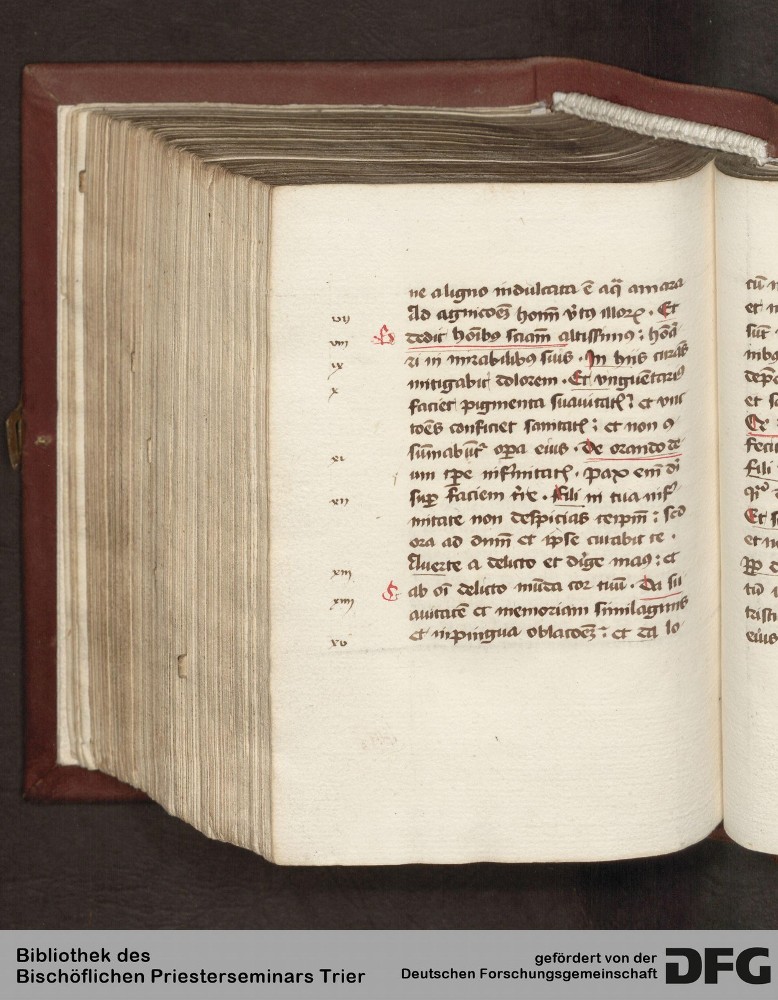 ne a ligno indulcata ē aq̄ amara
vij
Ad agnicoēꝫ hoīm v̓tꝰ illorꝝ · Et
viij
dedit hoībꝰ sciam̄ altissimꝰ : honā
ix
ri in mirabilibꝰ suis · In hiis curās
x
mitigabit dolorem · Et vnguentariꝰ
faciet pigmenta suauitatꝭ : et vnc
toēs conficiet sanitatꝭ : et non ꝯ
sūmabūt᷑ oꝑa eius · De orando de
xi
um tꝑe infirmitatꝭ · Pax em̄ di
xii
suꝑ faciem t̓re · Fili in tua inf
mitate non despicias teipm̄ : sed
ora ad dnm̄ et ipse curabit te ·
Auerte a delicto et dige manꝰ : et
xiij
ab oī delicto mūda cor tuū · Da su
xiiij
auitatē et memoriam similaginis
xv
et inpingua oblacoēꝫ : et da lo
cū
et
sūt
et
fecit
fili
Et
et
tū
eius
Bibliothek des
Bischöflichen Priesterseminars Trier
gefördert von der
Deutschen Forschungsgemeinschaft
DFG